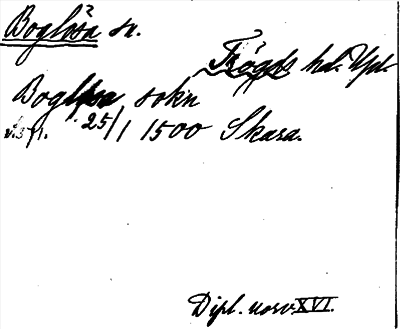 Boglösa sn.
Trögds hd. Upl.
Boglösa sokn
25/1 1500 Skara.
Dipl. norv. XVI.